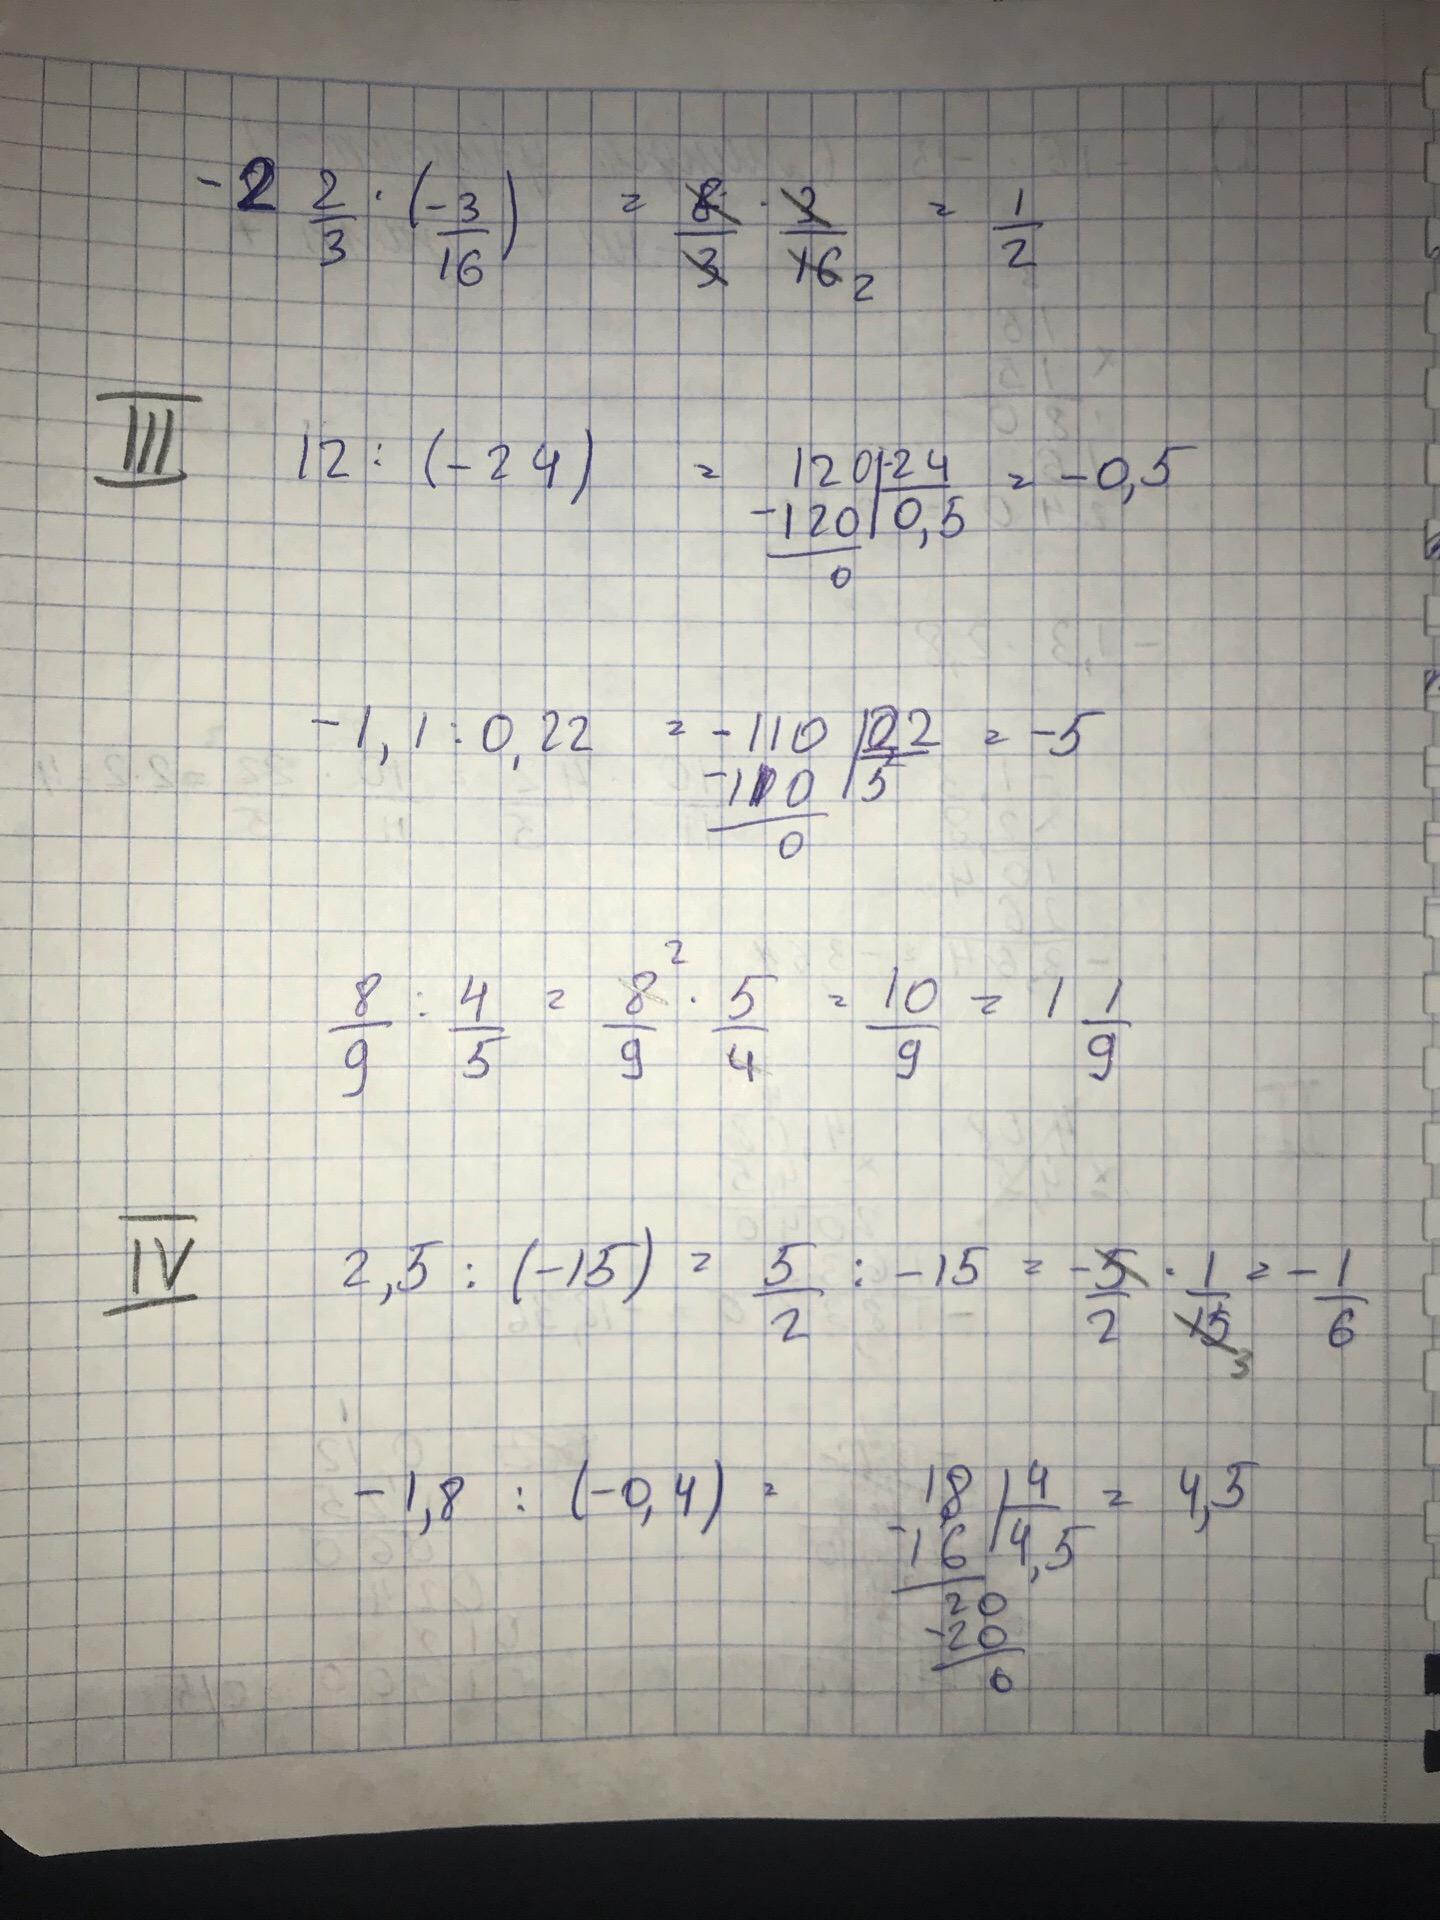 -2 2/3 · (-3/16) = 8/3 · 3/16 2 = 1/2
III 12 : (-24) = 120 | -24 = -0,5
-120 | 0,5
0
-1,1 : 0,22 = -110 | 022 = -5
-110 | 5
0
8/9 : 4/5 = 8/9 2 · 5/4 = 10/9 = 1 1/9
IV 2,5 : (-15) = 5/2 : -15 = -5/2 · 1/15 3 = -1/6
-1,8 : (-0,4) = 18 | 4 = 4,5
-16 | 4,5
20
-20
0